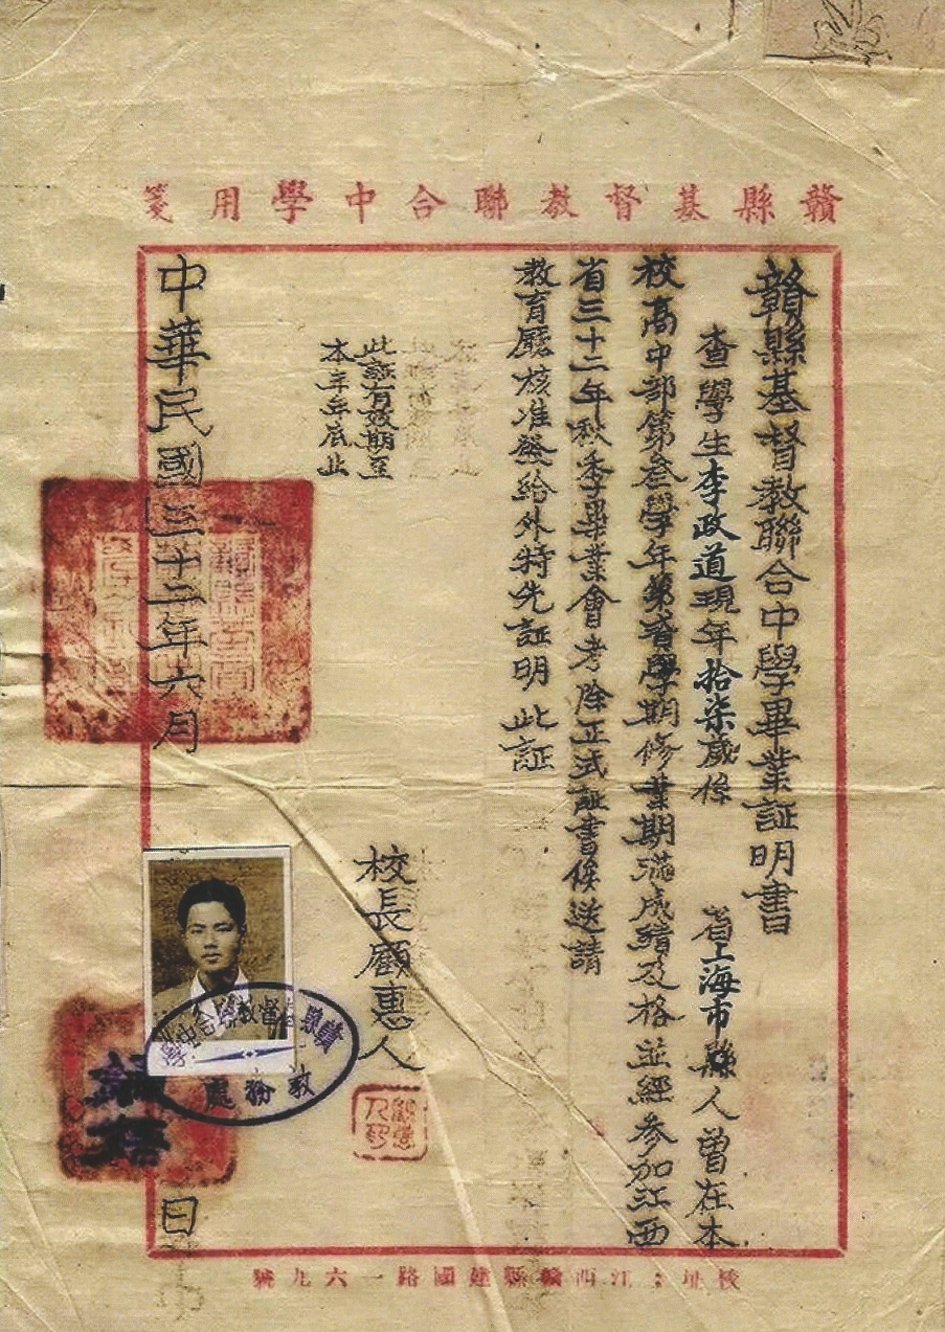 贛縣基督教聯合中學用箋
贛縣基督教聯合中學畢業証明書
查學生李政道現年拾柒歲係 省上海市縣人曾在本
校高中部第叁學年第貳學期修業期滿成績及格並經參加江西
省三十二年秋季畢業會考除正式証書俟送請
教育廳核准發給外特先証明此証
此証有效期至
本年年底止
校長顧惠人
中華民國三十二年六月 日
贛縣基督教聯合中學
教務處
校址：江西贛縣建國路一六九號